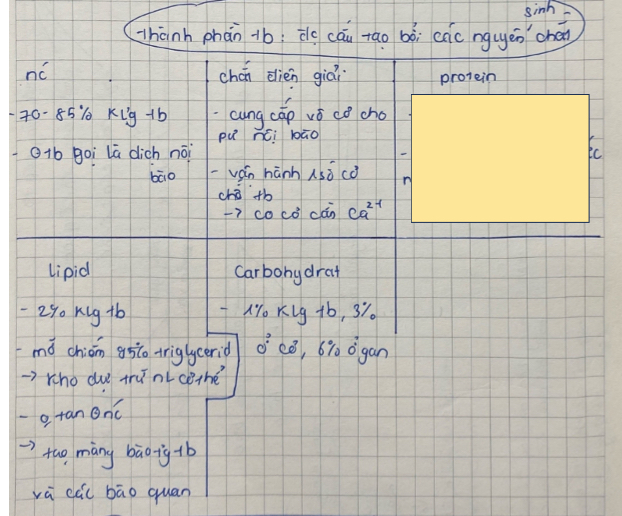 sinh -
thành phần tb: đc cấu tạo bởi các nguyên chất
nc
- 70-85% Klg tb
- Θ tb gọi là dịch nội
bào
chất điện giải:
- cung cấp vô cơ cho
pư nội bào
- vận hành 1 số cơ
chế tb
-> co cơ cần Ca²⁺
protein
-
-
lipid
- 2% Klg tb
- mỡ chiếm 95% triglycerid
-> kho dự trữ nL cơ thể
- tan Θ nc
-> tạo màng bào tg tb
và các bào quan
Carbohydrat
- 1% Klg tb, 3%
ở cơ, 6% ở gan